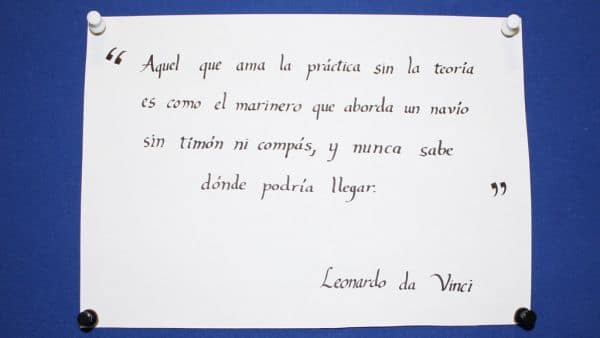 “ Aquel que ama la práctica sin la teoría
es como el marinero que aborda un navío
sin timón ni compás, y nunca sabe
dónde podría llegar. ”
Leonardo da Vinci